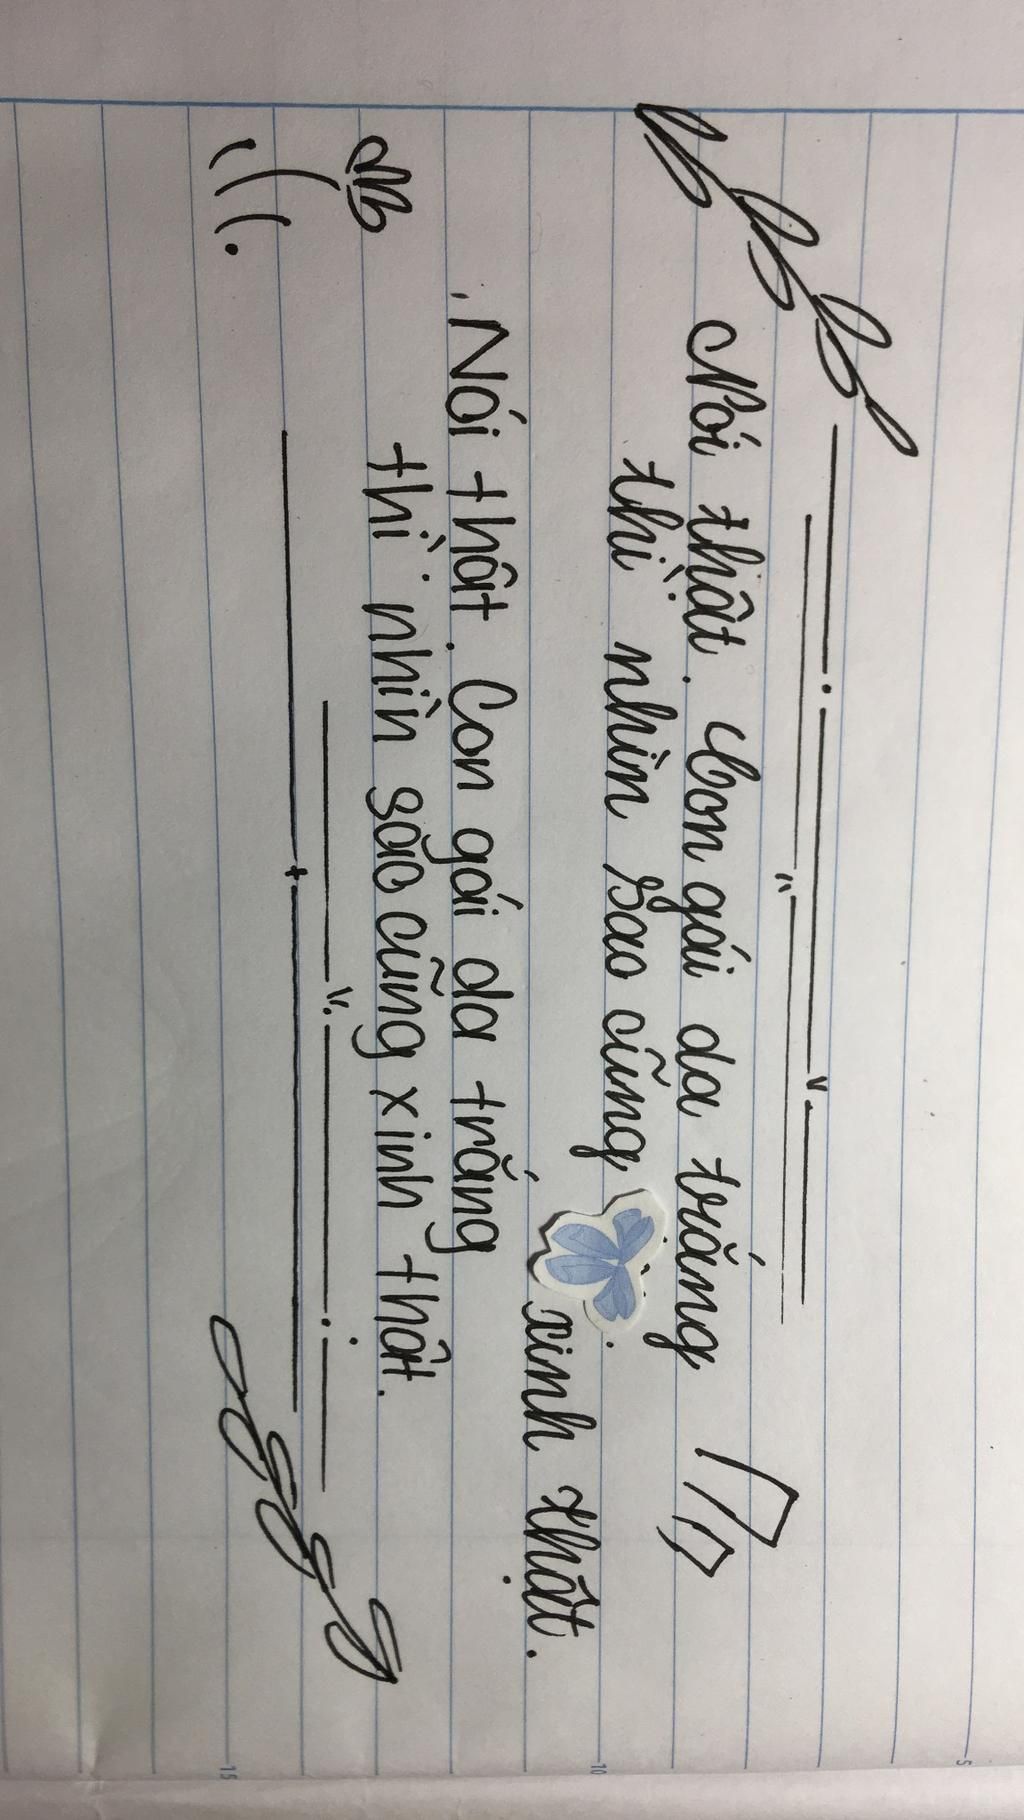 Nói thật. Con gái da trắng
thì nhìn sao cũng
xinh thật.
Nói thật. Con gái da trắng
thì nhìn sao cũng xinh thật.
5
10
15